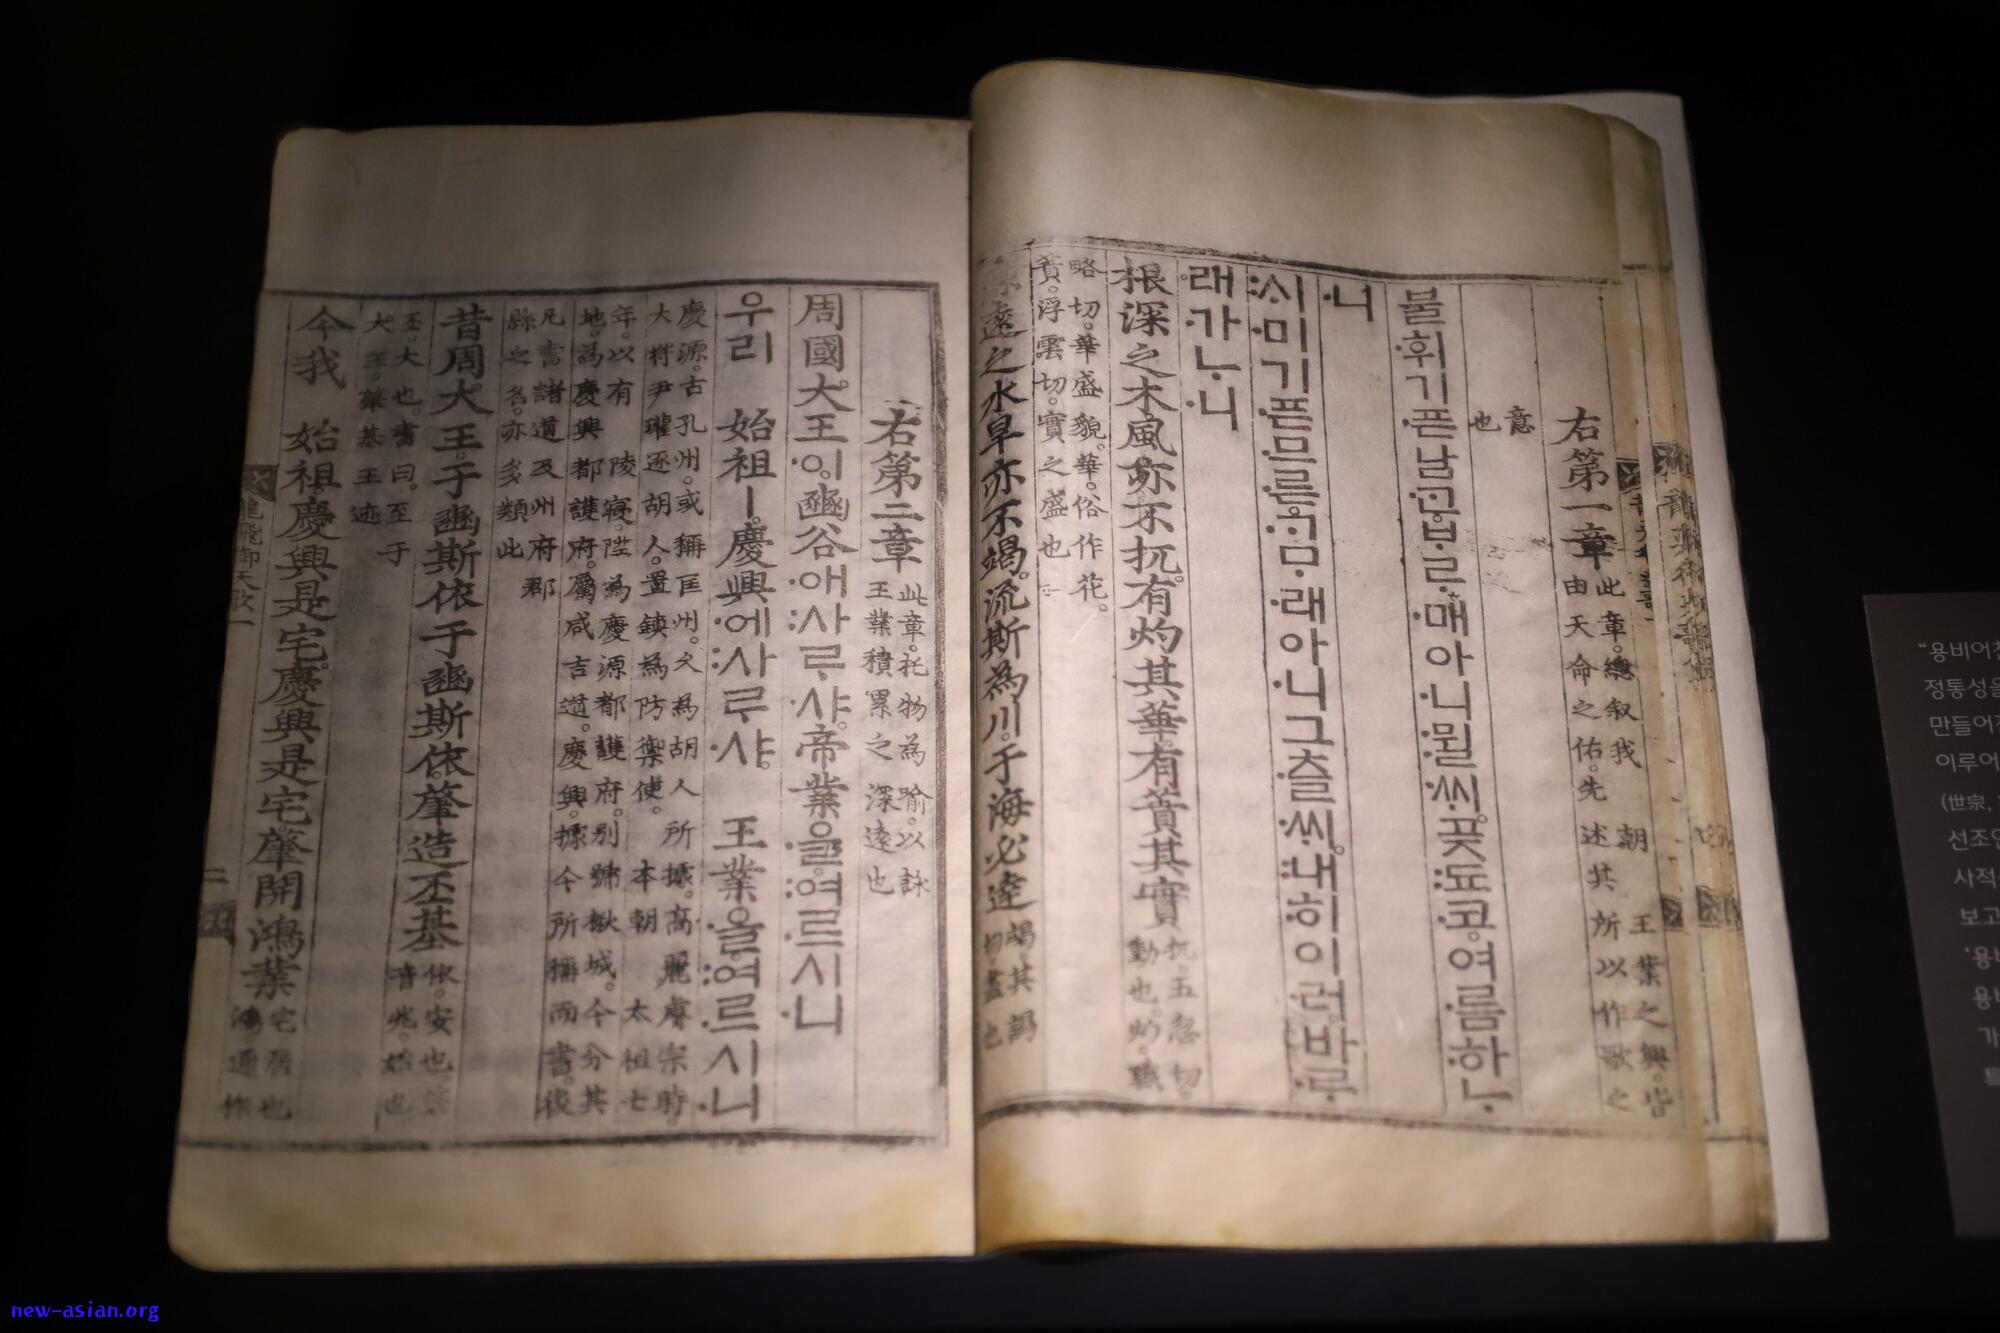 右第一章
此章。總叙我 朝 王業之興。皆
由天命之佑。先述其所以作歌之
意
也
불휘기픈남ᄀᆞᆫᄇᆞᄅᆞ매아니뮐ᄊᆡ。곶됴코。여름하ᄂᆞ
니
ᄉᆡ미기픈므른ᄀᆞᄆᆞ래아니그츨ᄊᆡ。내히이러。바ᄅᆞ
래가ᄂᆞ니
根深之木風亦不扤。有灼其華。有蕡其實
扤。五忽切。
動也。灼。職
略切。華盛貌。華。俗作花。
蕡。浮雲切。實之盛也
遠之水旱亦不竭。流斯為川。于海必達
竭。其謁
切。盡也
右第二章
此章。托物為喻。以詠
王業積累之深遠也
周國大王이。豳谷애사ᄅᆞ샤。帝業을여르시니
우리 始祖ㅣ。慶興에사ᄅᆞ샤。 王業을여르시니
慶源。古孔州。或稱匡州。久為胡人 所據。高麗睿宗時。
大將尹瓘逐胡人。置鎮為防禦使。 本朝 太祖七
年。以有 陵寢。陞為慶源都護府。別號楸城。今分其
地。為慶興都護府。屬咸吉道。慶興。據今所稱而書。後
凡書諸道及州府郡
縣之名。亦多類此
昔周大王。于豳斯依。于豳斯依。肇造丕基
依。安也。肇
音兆。始也
丕。大也。書曰。至于
大王。肇基王迹
今我 始祖。慶興是宅。慶興是宅。肇開鴻業
宅。居也
鴻。通作
龍飛御天歌一
二
“용비어천
정통성을
만들어진
이루어
(世宗,
선조인
사적
보고
‘용비
용비
가
new-asian.org